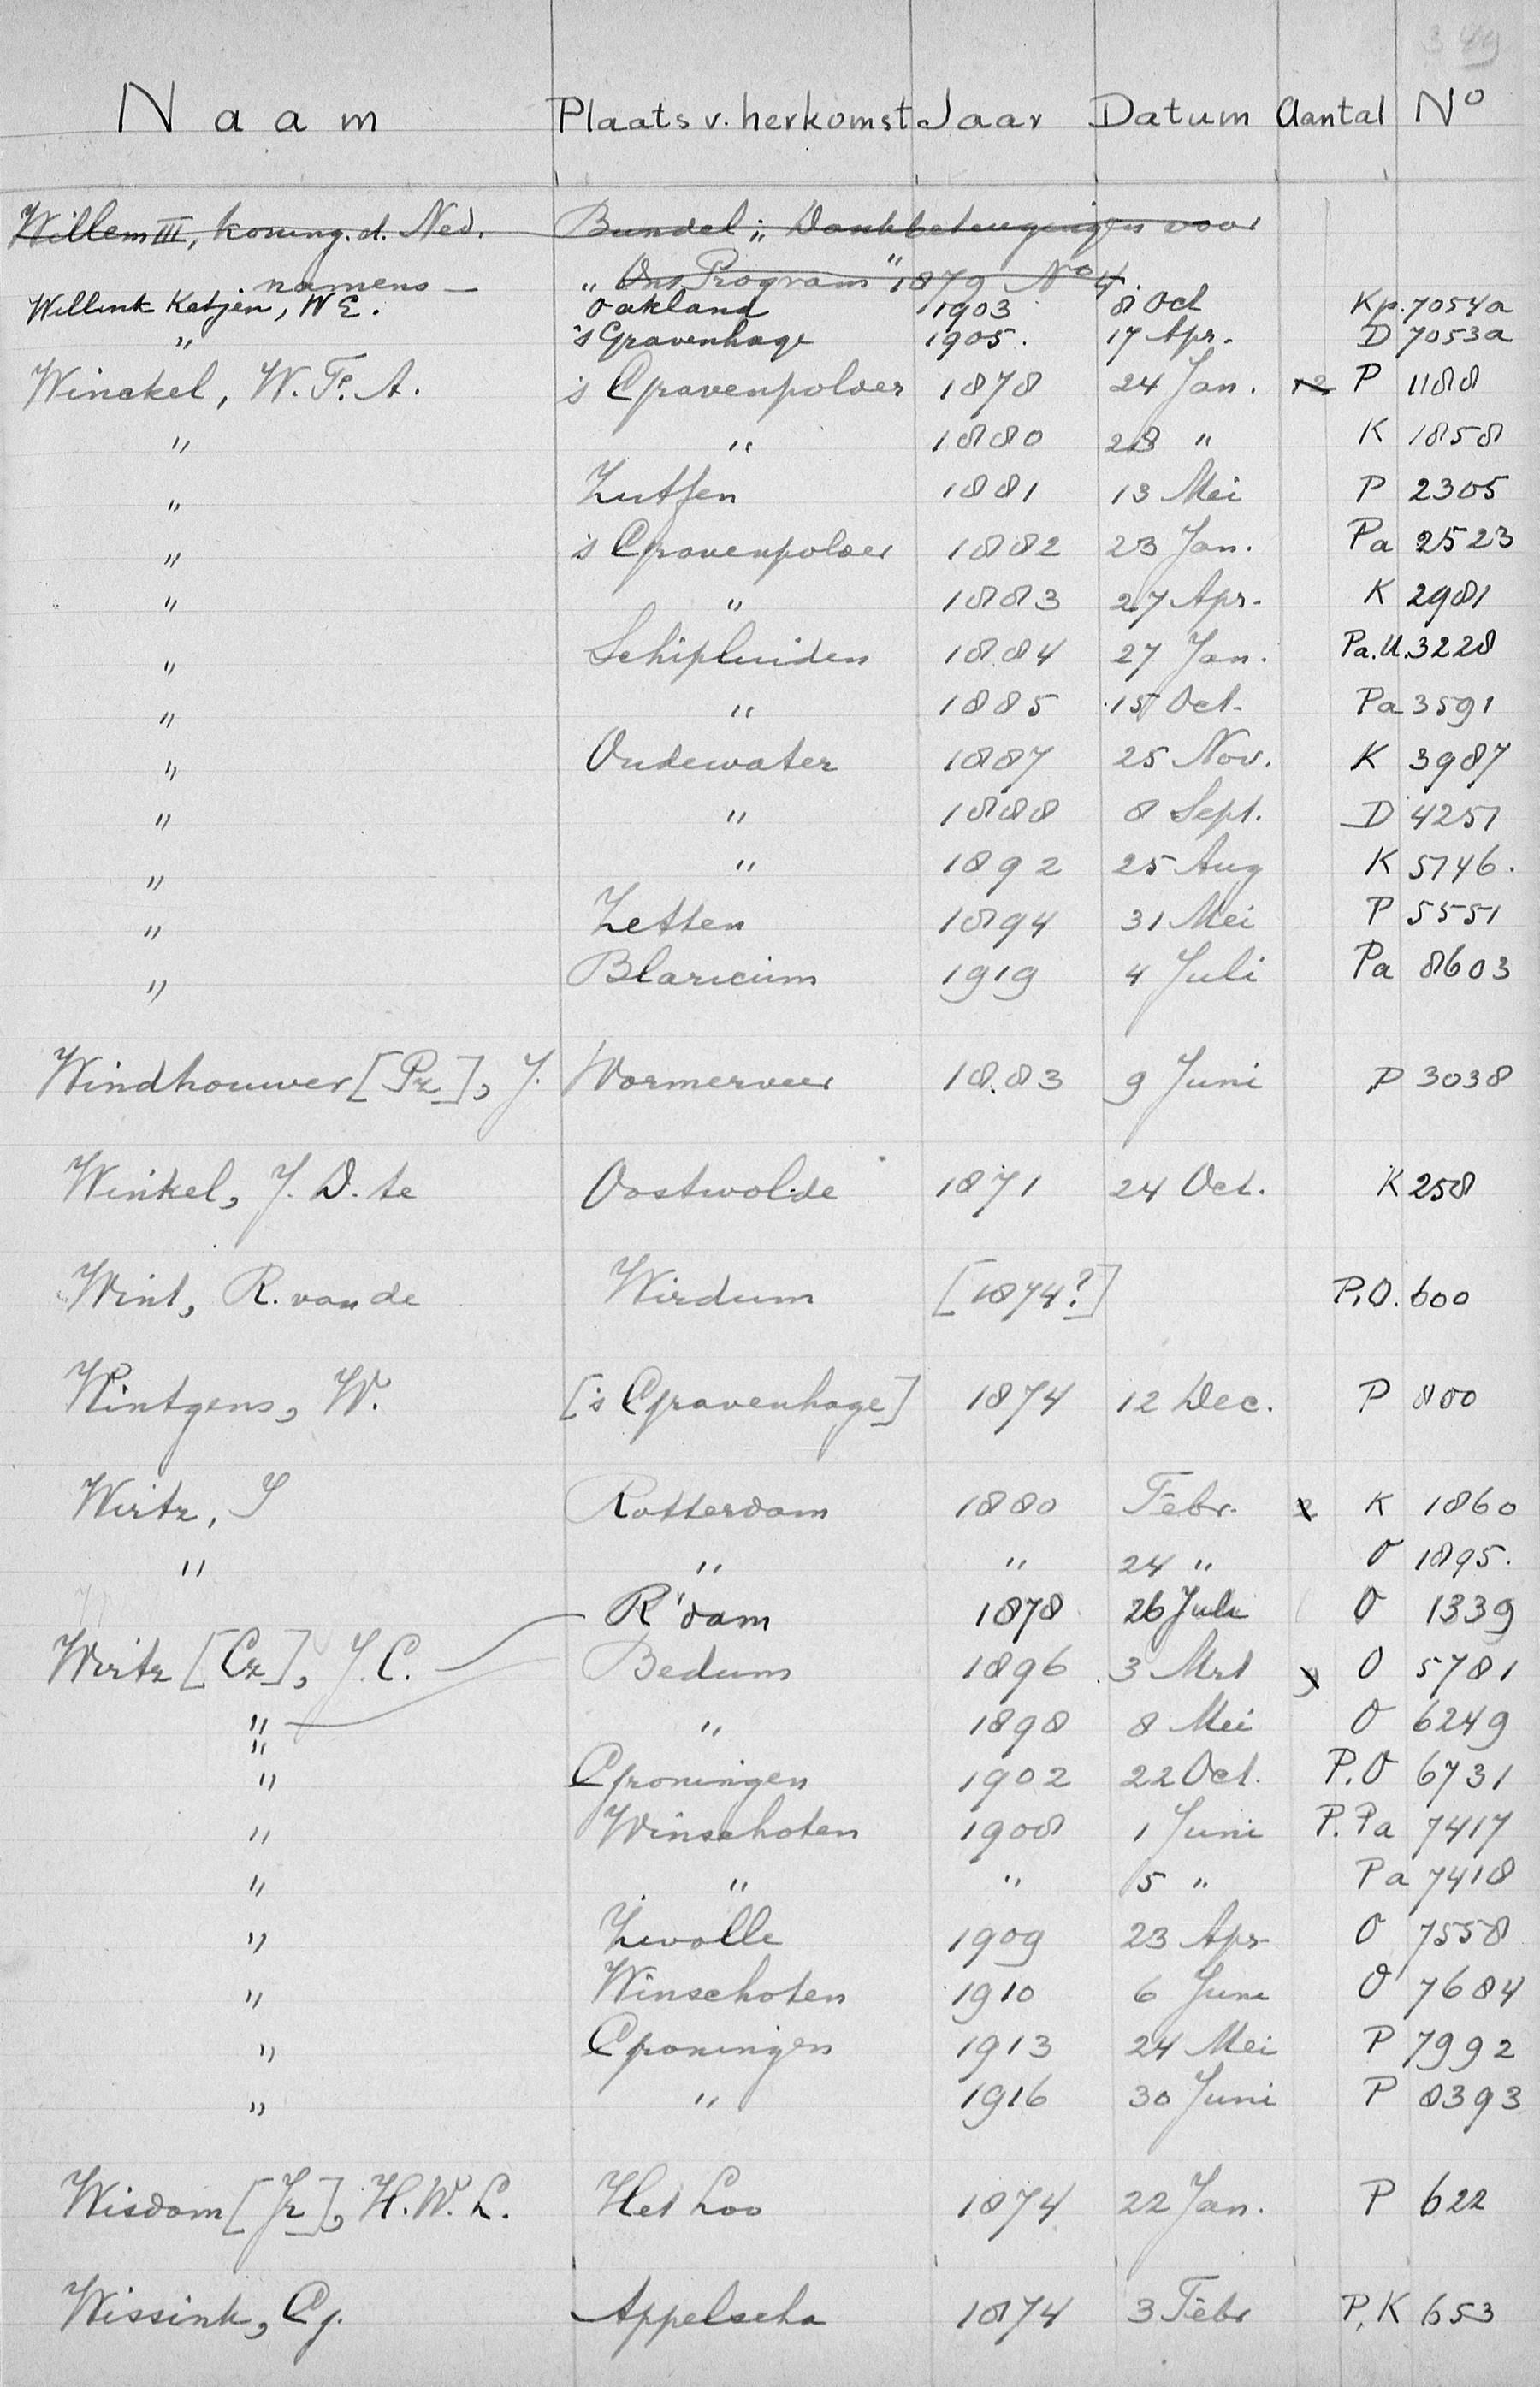 349
Naam Plaats v. herkomst Jaar Datum Aantal No
Willem III, koning. d. Ned. Bundel „Dankbetuigingen voor
namens — „Ons Program" 1879 No 4.
Willink Ketjen, W E. Oakland 1903 8 Oct Kp. 7054a
" 's Gravenhage 1905. 17 Apr. D 7053a
Winckel, W. F. A. 's Gravenpolder 1878 24 Jan. 12 P 1188
" " 1880 28 " K 1858
" Zutfen 1881 13 Mei P 2305
" 's Gravenpolder 1882 23 Jan. Pa 2523
" " 1883 27 Apr. K 2981
" Schipluiden 1884 27 Jan. Pa. U. 3228
" " 1885 15 Oct. Pa 3591
" Oudewater 1887 25 Nov. K 3987
" " 1888 8 Sept. D 4251
" " 1892 25 Aug K 5146.
" Zetten 1894 31 Mei P 5551
" Blaricum 1919 4 Juli Pa 8603
Windhouwer [Pz], J. Wormerveer 1883 9 Juni P 3038
Winkel, J. D. te Oostwolde 1871 24 Oct. K 258
Wint, R. van de Wirdum [1874?] P, O. 600
Wintgens, W. ['s Gravenhage] 1874 12 Dec. P 800
Wirtz, J Rotterdam 1880 Febr. 2 K 1860
" " " 24 " O 1895.
R'dam 1878 26 Juli O 1339
Wirtz [Cz], J. C. Bedum 1896 3 Mrt 9 O 5781
" " 1898 8 Mei O 6249
"
" Groningen 1902 22 Oct. P. O 6731
" Winschoten 1908 1 Juni P. Pa 7417
" " " 5 " Pa 7418
" Zwolle 1909 23 Apr O 7558
" Winschoten 1910 6 Juni O 7684
" Groningen 1913 24 Mei P 7992
" " 1916 30 Juni P 8393
Wisdom [Jr], H. W. L. Het Loo 1874 22 Jan. P 622
Wissink, G. Appelscha 1874 3 Febr P, K 653